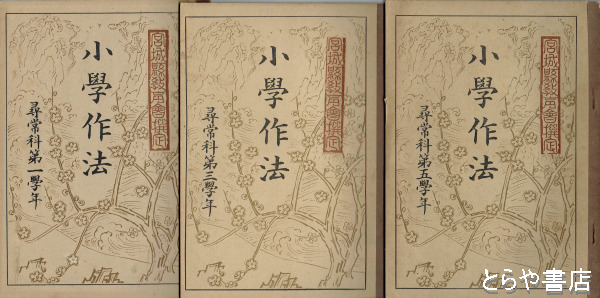 宮城縣教育會撰定
小學作法
尋常科第一學年
宮城縣教育會撰定
小學作法
尋常科第三學年
宮城縣教育會撰定
小學作法
尋常科第五學年
とらや書店